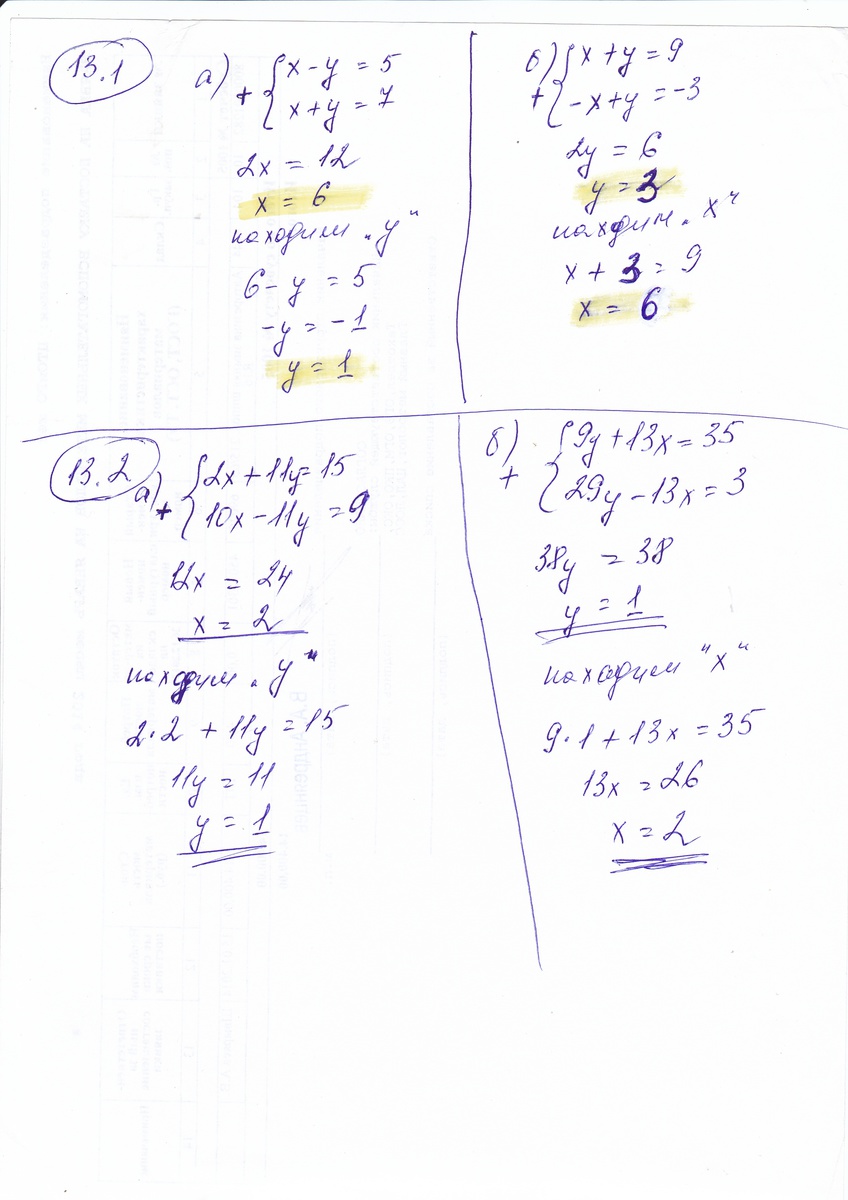 13.1
а) { x - y = 5
+ { x + y = 7
2x = 12
x = 6
находим „y"
6 - y = 5
-y = -1
y = 1
б) { x + y = 9
+ { -x + y = -3
2y = 6
y = 3
находим „x"
x + 3 = 9
x = 6
13.2
а) { 2x + 11y = 15
+ { 10x - 11y = 9
12x = 24
x = 2
находим „y"
2·2 + 11y = 15
11y = 11
y = 1
б) { 9y + 13x = 35
+ { 29y - 13x = 3
38y = 38
y = 1
находим "x"
9·1 + 13x = 35
13x = 26
x = 2